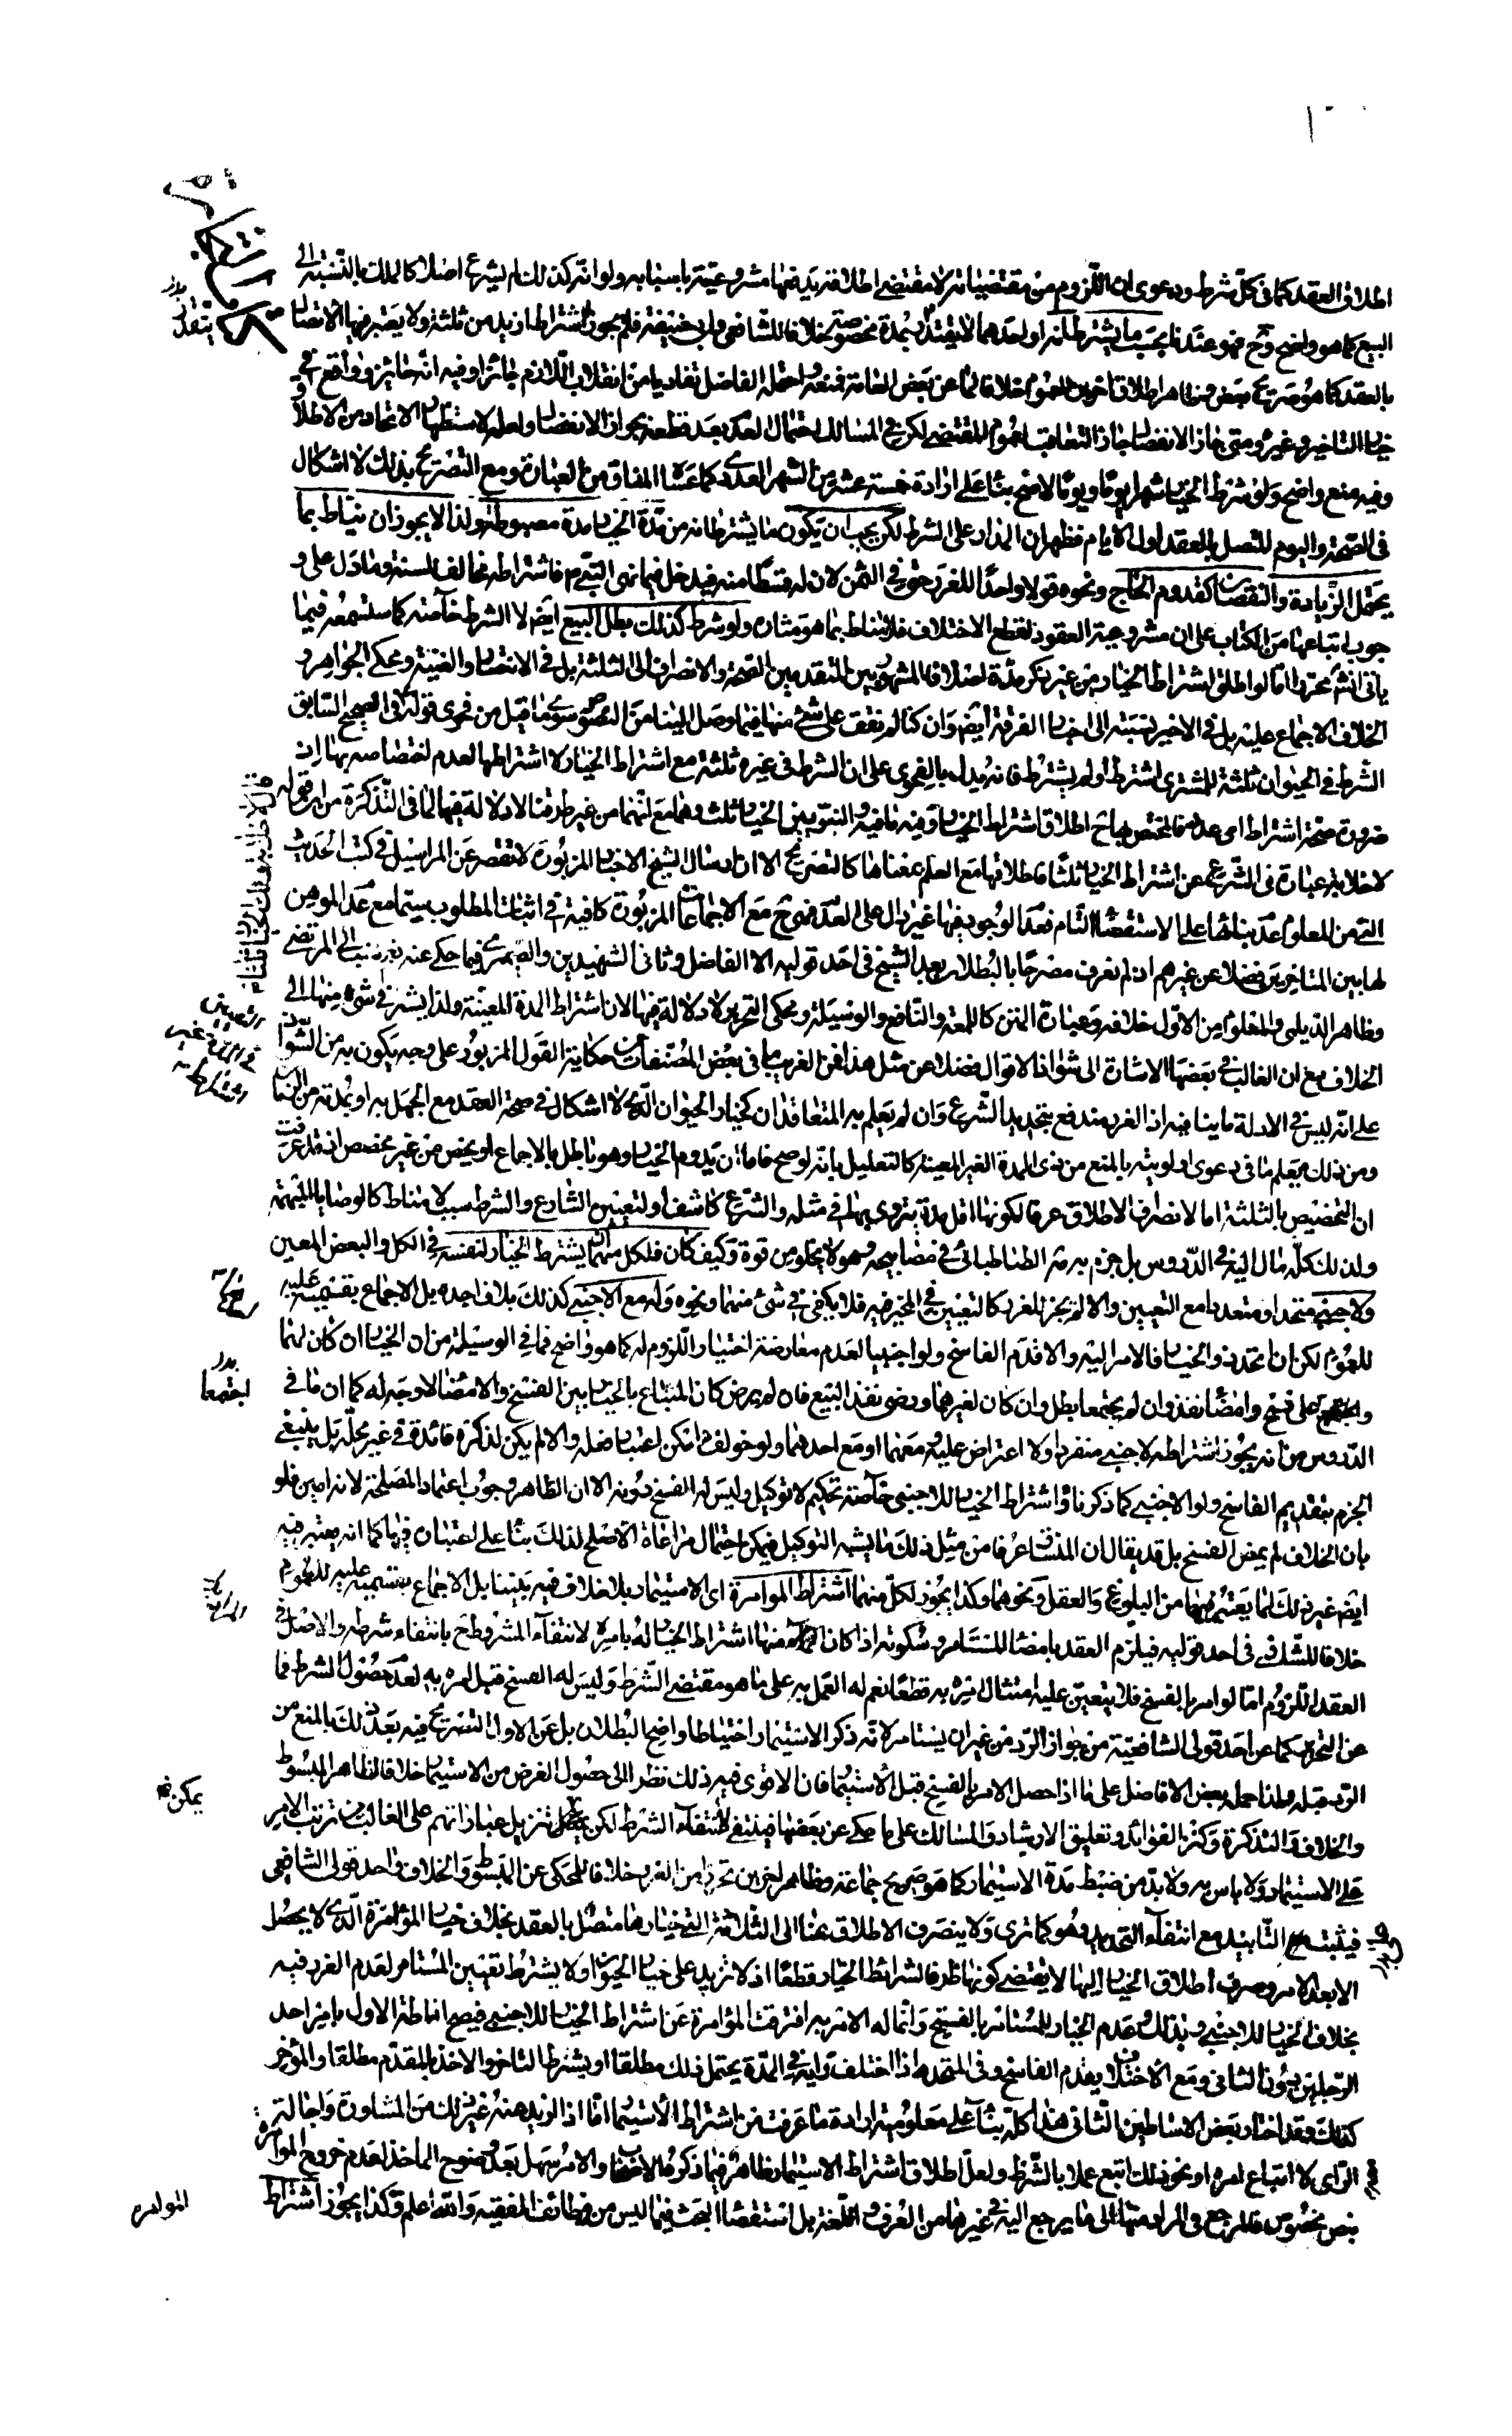 اطلاق العقد كما فى كل شرط ودعوى ان اللزوم من مقتضياته لا مقتضى اطلاقه يدفعها مشروعيته باسبابه ولو انه كذلك لم يشرع اصلا كالملك بالنسبة الى
البيع كما هو واضح وح فهو عندنا بحسب ما يشترطانه او احدهما لا يتقدر بمدة مخصوصة خلافا للشافعى وابى حنيفة فلم يجوزا اشتراط ازيد من ثلثة ولا يعتبر فيها الاتصال
بالعقد كما هو صريح بعض وظاهر اطلاق اخرين للعموم خلافا لما عن بعض العامة فمنعه واحتمله الفاضل تفاديا من انقلاب اللازم جائزا وفيه انه جائز وواقع فى
خيار التاخير وغيره ومتى جاز الانفصال جاز التعاقب لعموم المقتضى لكن فى المسالك احتمال العدم بعد قطعه بجواز الانفصال ولعله لاستظهار الاتحاد من الاطلاق
وفيه منع واضح ولو شرط الخيار شهرا يوما ويوما لا صح بناء على ارادة خمسة عشر من الشهر العددى كما عساه المنساق من العبارة ومع التصريح بذلك لا اشكال
فى الصحة واليوم المتصل بالعقد اول الايام فظهر ان المدار على الشرط لكن يجب ان يكون ما يشترطانه من مدة الخيار مدة مضبوطة ولذا لا يجوز ان يناط بما
يحتمل الزيادة والنقصان كقدوم الحاج ونحوه قولا واحدا للغرر حتى فى الثمن لان له قسطا منه فيدخل فيما نهى النبى ص عنه فاشتراطه مخالف للسنة وما دل على و
جوب اتباعها من الكتاب على ان مشروعية العقود لقطع الاختلاف فلا يناط بما هو مثاره ولو شرط كذلك بطل البيع ايضا لا الشرط خاصة كما ستسمعه فيما
ياتى انشاء محررا اما لو اطلق اشتراط الخيار من غير ذكر مدة اصلا فالمشهور بين المتقدمين الصحة والانصراف الى الثلثة بل فى الانتصار والغنية ومحكى الجواهر و
الخلاف الاجماع عليه بل فى الاخير نسبته الى اخبار الفرقة ايضا وان كنا لم نقف على شئ منها فيما وصل الينا من النصوص سوى ما قيل من فحوى قوله ع فى الصحيح السابق
الشرط فى الحيوان ثلثة للمشترى اشترط او لم يشترط فانه يدل بالفحوى على ان الشرط فى غيره ثلثة مع اشتراط الخيار لا اشتراطها لعدم اختصاصه بها اذ
ضرورة صحة اشتراط اى عدد فالمختص بها ح اطلاق اشتراط الخيار وفيه ما فيه والنبويين الخيار ثلث وهما مع انهما من غير طرقنا لا دلالة فيهما لما فى التذكرة من ان قوله
لا خلابة عبارة فى الشرع عن اشتراط الخيار ثلثا فاطلاقها مع العلم بمعناها كالتصريح الا ان ارسال الشيخ الاخبار المزبورة لا تقصر عن المراسيل فى كتب الحديث
التى من المعلوم عدم بنائها على الاستقصاء التام فعدم الوجود فيها غير دال على العدم فهى ح مع الاجماعات المزبورة كافية فى اثبات المطلوب سيما مع عدم الموهن
لها بين المتاخرين فضلا عن غيرهم اذ لم نعرف مصرحا بالبطلان بعد الشيخ فى احد قوليه الا الفاضل وثانى الشهيدين والصيمرى فيما حكى عنه نسب الى المرتضى
وظاهر الديلمى والمعلوم من الاول خلافه وعبارة المتن كاللمعة والنافع والوسيلة ومحكى التحرير لا دلالة فيها الا ان اشتراط المدة المعينة ولذا لم يشر فى شئ منها الى
الخلاف مع ان الغالب فى بعضها الاشارة الى شواذ الاقوال فضلا عن مثل هذا فمن الغريب ما فى بعض المصنفات من حكاية القول المزبور على وجه يكون به من الشواذ
على انه ليس فى الادلة ما ينافيه اذ الغرر مندفع بتحديد الشرع وان لم يعلم به المتعاقدان كخيار الحيوان الذى لا اشكال فى صحة العقد مع الجهل به او بمدته من الزمان
ومن ذلك يعلم ما فى دعوى اولويته بالمنع من ذى المدة الغير المعينة كالتعليل بانه لو صح فاما ان يدوم الخيار وهو باطل بالاجماع او يخص من غير مخصص اذ قد عرفت
ان التخصيص بالثلثة اما لانصراف الاطلاق عرفا لكونها اقل مدة يتروى بها فى مثله والشرع كاشف او لتعيين الشارع والشرط سبب لا مناط كالوصايا المبهمة
ولذلك كله مال اليه فى الدروس بل جزم به مر الطباطبائى فى مصابيحه وهو لا يخلو من قوة وكيف كان فلكل منهما ان يشترط الخيار لنفسه فى الكل والبعض المعين
ولاجنبى متحدا ومتعددا مع التعيين والا لم يجز للغرر كالتعيين فى المخير فيه فلا يكفى فى شئ منهما ونحوه وله مع الاجنبى كذلك بلا خلاف اجده بل الاجماع بقسميه عليه
للعموم لكن ان اتحد ذو الخيار فالامر اليه والا قدم الفاسخ ولو اجنبيا لعدم معارضة اختيار اللزوم له كما هو واضح فما فى الوسيلة من ان الخيار ان كان لهما
واجتمعا على فسخ وامضاء نفذ وان لم يجتمعا بطل وان كان لغيرهما ورضى نفذ البيع فان لم يرض كان المبتاع بالخيار بين الفسخ والامضاء لا وجه له كما ان ما فى
الدروس من انه يجوز اشتراطه لاجنبى منفردا ولا اعتراض عليه ومعهما او مع احدهما ولو خولف امكن اعتبار فعله والا لم يكن لذكره فائدة فى غير محله بل ينبغى
الجزم بتقديم الفاسخ ولو الاجنبى كما ذكرنا واشتراط الخيار للاجنبى خاصة تحكيم لا توكيل وليس له الفسخ دونه الا ان الظاهر وجوب اعتماد المصلحة لانه امين فلو
بان الخلاف لم يمض الفسخ بل قد يقال ان المنساق عرفا من مثل ذلك ما يشبه التوكيل فيمكن احتمال مراعاة الاصلح لذلك بناء على اعتباره فيها كما انه يعتبر فيه
ايضا غير ذلك مما يعتبر فيها من البلوغ والعقل ونحوهما وكذا يجوز لكل منهما اشتراط المؤامرة اى الاستيمار بلا خلاف فيه بيننا بل الاجماع بقسميه عليه للعموم
خلافا للشافعى فى احد قوليه فيلزم العقد بامضاء المستامر وسكوته اذا كان المراد منها اشتراط الخيار له بامره لانتفاء المشروط ح بانتفاء شرطه والاصل فى
العقد اللزوم اما لو امر بالفسخ فلا يتعين عليه امتثال امره به قطعا نعم له العمل به على ما هو مقتضى الشرط وليس له الفسخ قبل امره به لعدم حصول الشرط فما
عن التحرير كما عن احد قولى الشافعية من جواز الرد من غير ان يستامر لانه ذكر الاستيمار احتياطا واضح البطلان بل عن الاول التصريح فيه بعد ذلك بالمنع من
الرد قبله ولذا حمله بعض الافاضل على ما اذا حصل الامر بالفسخ قبل الاستيمار فان الاقوى فيه ذلك نظرا الى حصول الغرض من الاستيمار خلافا لظاهر المبسوط
والخلاف والتذكرة وكنز الفوائد وتعليق الارشاد والمسالك على ما حكى عن بعضها فينتفى لانتفاء الشرط لكن يمكن تنزيل عباراتهم على الغالب من ترتب الامر
على الاستيمار ولا باس به ولا بد من ضبط مدة الاستيمار كما هو صريح جماعة وظاهر اخرين تحرزا من الغرر خلافا للمحكى عن المبسوط والخلاف واحد قولى الشافعى
فيثبت التابيد مع انتفاء التحديد وهو كما ترى ولا ينصرف الاطلاق هنا الى الثلاثة التى خيارها متصل بالعقد بخلاف خيار المؤامرة الذى لا يحصل
الا بعد الامر وصرف اطلاق الخيار اليها لا يقتضى كونها ظرفا لشرائط الخيار قطعا اذ لا تزيد على خيار الحيوان ولا يشترط تعيين المستامر لعدم الغرر فيه
بخلاف الخيار للاجنبى وبذلك وعدم الخيار للمستامر بالفسخ وانما له الامر به افترقت المؤامرة عن اشتراط الخيار للاجنبى فيصح اناطة الاول بامر احد
الرجلين دون الثانى ومع الاختلاف يقدم الفاسخ وفى المتحد اذا اختلف رايه فى المدة يحتمل ذلك مطلقا او بشرط التاخر والاخذ بالمقدم مطلقا والمؤخر
كذلك وقد اختار بعض الاساطين الثانى هذا كله بناء على معلومية ارادة ما عرفت من اشتراط الاستيمار اما اذا اريد منه غير ذلك من المشاورة واجالة
الراى لا اتباع امره او نحو ذلك اتبع عملا بالشرط ولعل اطلاق اشتراط الاستيمار ظاهر فيما ذكره الاصحاب والامر سهل بعد وضوح الماخذ لعدم خروج المؤامرة
بنص بخصوص فالمرجع فى المراد منها الى ما يرجع اليه فى غيرها من العرف واللغة بل استقصاء البحث فيما ليس من وظائف الفقيه والله اعلم وكذا يجوز اشتراط
يتقدر
اجتمعا
يمكن
المؤامره